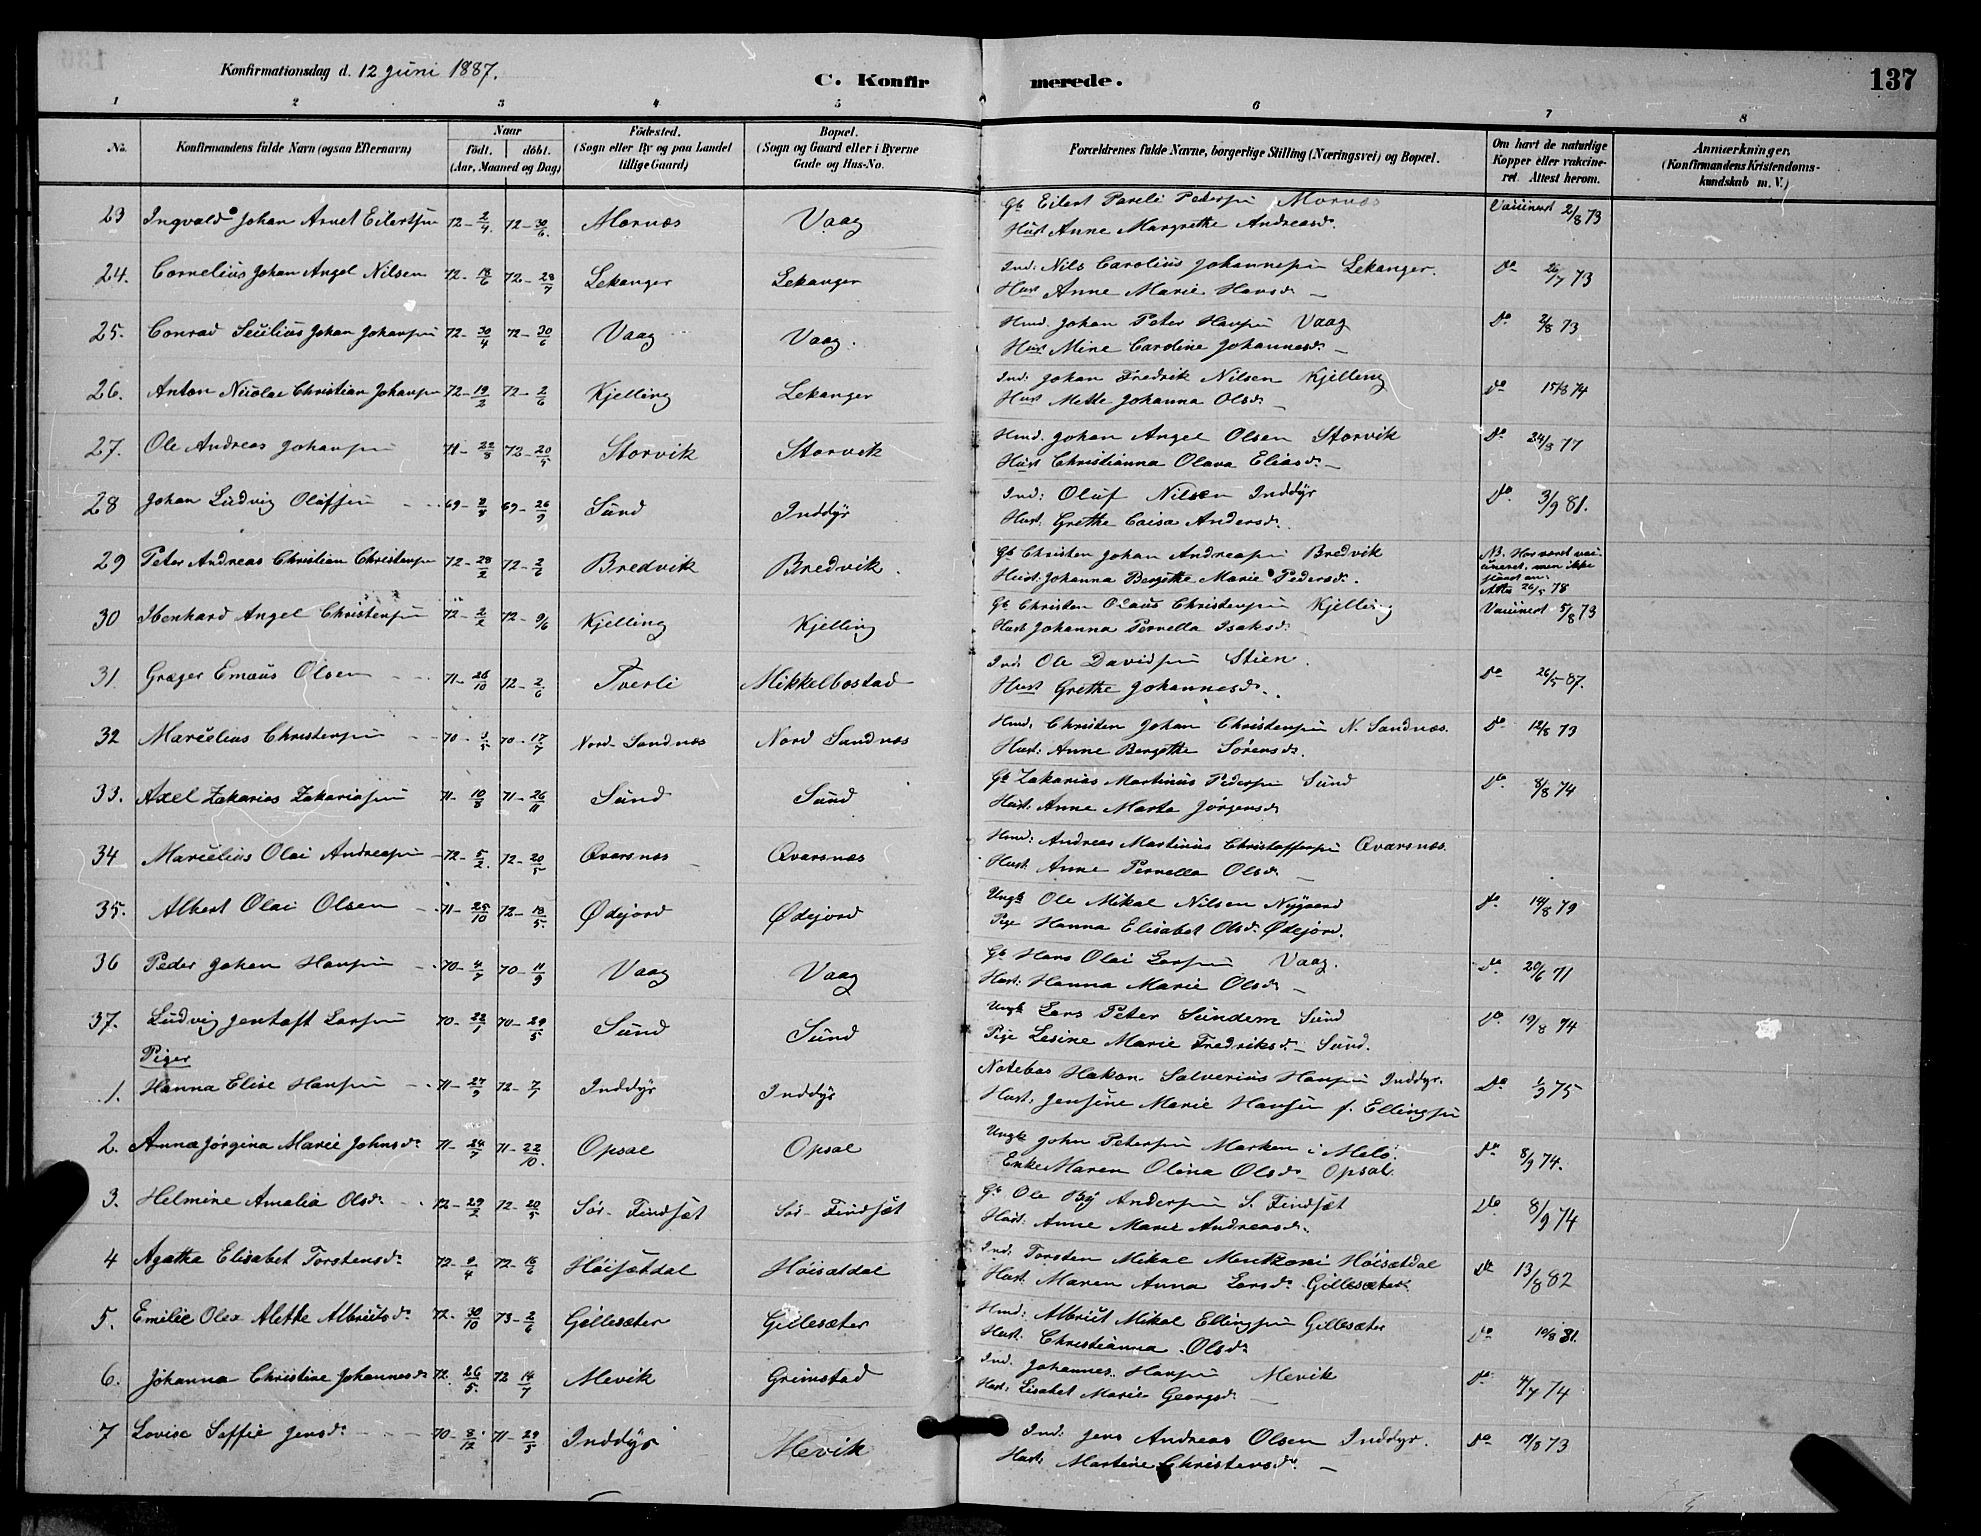 Konfirmationsdag d. 12 Juni 1887.
C. Konfirmerede.
137
1 2 3 4 5 6 7 8
No. Konfirmandens fulde Navn (ogsaa Efternavn) Naar födt. döbt. (Aar, Maaned og Dag) Födested. (Sogn eller By og paa Landet tillige Gaard) Bopæl. (Sogn og Gaard eller i Byerne Gade og Hus-No. Forældrenes fulde Navne, borgerlige Stilling (Næringsvei) og Bopæl. Om havt de naturlige Kopper eller vakcineret. Attest herom. Anmærkninger. (Konfirmandens Kristendomskundskab m. V.)
23 Ingvald Johan Arnet Eilertsen 72-2/4 72-30/6 Mornæs Vaag Gb Eilert Pareli Pedersen Mornæs Vaccineret 2/8 73
Hust Anne Margrethe Andreasd.
24. Cornelius Johan Angel Nilsen 72-18/6 72-28/7 Lekanger Lekanger Ind: Nils Carolius Johannesen Lekanger. Do 26/7 73
Hust Anne Marie Hansd. —
25. Conrad Johan Johansen 72-30/4 72-30/6 Vaag Vaag. Hmd. Johan Peter Hansen Vaag Do 2/8 73
Hust Mine Caroline Johannesd. —
26. Anton Nicolai Christian Johansen 72-19/2 72-2/6 Kjelling Lekanger Ind: Johan Fredrik Nilsen Kjelling Do 15/8 74
Hust Mette Johanna Olsd. —
27. Ole Andreas Johansen 71-22/8 72-20/5 Storvik Storvik Hmd. Johan Angel Olsen Storvik Do 24/8 77
Hust Christianna Olava Eliasd. —
28 Johan Ludvig Olufsen 69-2/4 69-26/9 Sund Inddyr Ind: Oluf Nilsen Inddyr Do 3/9 81.
Hust: Grethe Caisa Andersd.
29 Peter Andreas Christian Christensen 72-28/2 72-2/6 Bredvik Bredvik. Gb Christen Johan Andreasen Bredvik NB. Har været vaccineret, men ikke slaaet an. Attes 26/5 78
Hust: Johanna Bergithe Marie Pedersd.
30 Ibenhard Angel Christensen 72-2/2 72-9/6 Kjelling Kjelling Gb Christen Olaus Christensen Kjelling Vaccineret 5/8 73
Hust Johanna Pernella Isaksd. —
31. Græger Emaus Olsen 71-26/10 72-2/6 Tverli Mikkelbostad Ind: Ole Davidsen Stien. Do 26/5 87.
Hust Grethe Johannesd.
32 Marcelius Christensen 70-3/5 70-17/7 Nord-Sandnæs Nord Sandnæs Hmd: Christen Johan Christensen N. Sandnæs. Do 12/8 73
Hust: Anne Bergithe Sørensd.
33. Axel Zakarias Zakariasen 71-10/8 71-26/11 Sund Sund Gb Zakarias Martinus Pedersen Sund Do. 8/8 74
Hust: Anne Marta Jørgensd.
34 Marcelius Olai Andreasen 72-5/2. 72-20/5 Qvarsnæs Qvarsnæs Hmd: Andreas Martinus Christoffersen Qvarsnæs.
Hust: Anne Pernella Olsd. —
35. Albert Olai Olsen 71-25/10 72-18/5. Ødejord Ødejord Ungk Ole Mikal Nilsen Nygaard Do. 14/8 79
Pige Hanna Elisabet Olsd. Ødejord.
36 Peder Johan Hansen 70-4/7 70-11/9 Vaag Vaag Gb Hans Olai Larsen Vaag. Do 20/6 71
Hust: Hanna Marie Olsd. —
37. Ludvig Jentoft Larsen 70-22/1 70-29/5 Sund Sund Ungk Lars Peter Sundem Sund Do 19/8 74
Pige Lesine Marie Fredriksd. — Sund.
Piger
1. Hanna Elise Hansen 71-27/9 72-7/1 Inddyr Inddyr Notebas Hakon Salverius Hansen Inddyr. Do 1/9 75
Hust: Jensine Marie Hansen f. Ellingsen
2. Anna Jørgina Marie Johnsd. 71-24/7 71-22/10. Opsal Opsal Ungk John Petersen Marken i Melø. Do 8/9 74.
Enke Maren Olina Olsd. Opsal.
3. Helmine Amalia Olsd. 72-29/2 72-20/5 Sør-Findsæt Sør-Findsæt Gb Ole Andersen S. Findsæt Do. 8/9 74
Hust: Anne Marie Andreasd.
4 Agathe Elisabet Torstensd. 72-9/4 72-16/6 Høisætdal Høisætdal Ind: Torsten Mikal Høisætdal Do 13/8 82
Hust Maren Anna Larsd. Gillesæter.
5. Emilie Olea Alette Albrigtsd. 72-30/10 73-2/6 Gillesæter Gillesæter Hmd: Albrigt Mikal Ellingsen Gillesæter Do 10/8 81.
Hust. Christianna Olsd.
6. Johanna Christine Johannesd. 72-26/5. 72 14/7 Mevik Grimstad Ind. Johannes Hansen Mevik Do. 4/7 74
Hust: Lisabet Marie Georgsd. —
7 Lovise Soffie Jensd. 70-8/12 71-29/5 Inddyr Mevik Ind: Jens Andreas Olsen Inddyr. Do 19/8 73
Hust: Martine Christensd. —